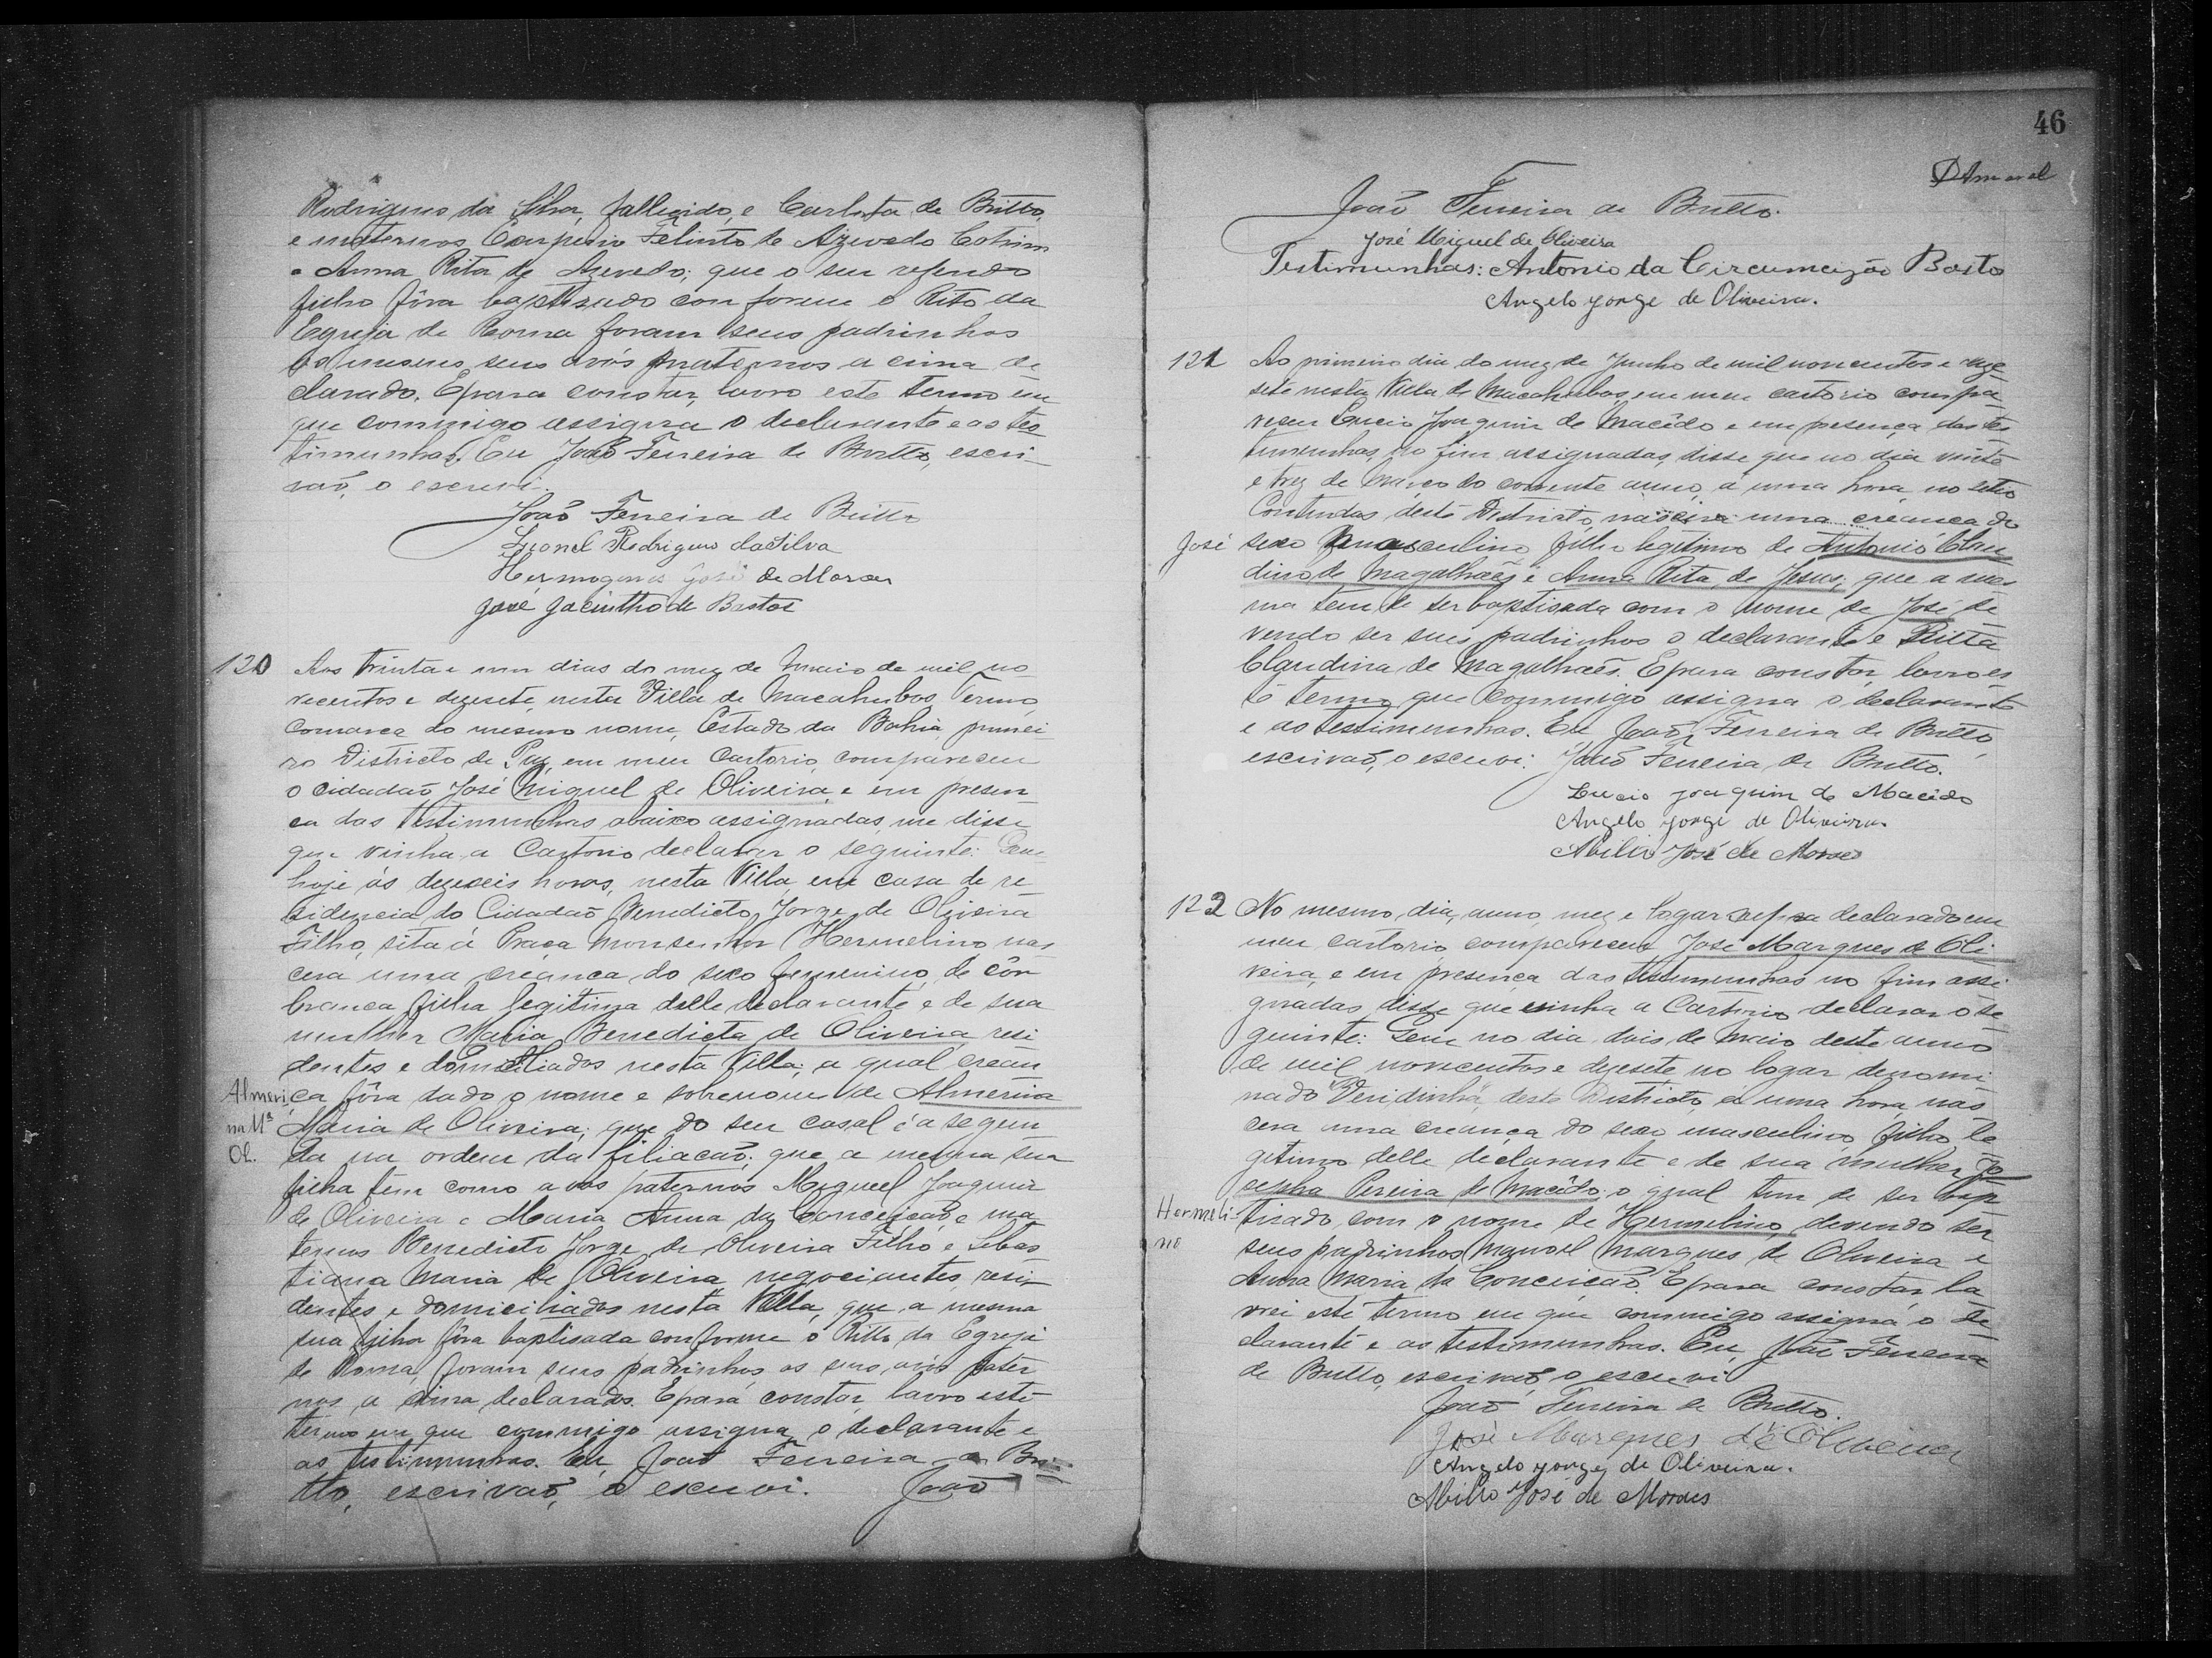 Rodrigues da Silva, fallecido, e Carlota de Britto,
e maternos Exuperio Felinto de Azevedo Cotrim
e Anna Rita de Azevedo; que o seu referido
filho fôra baptisado conforme o Rito da
Egreja de Roma foram seus padrinhos
os mesmos seus avós maternos a cima de
clarado. E para constar, lavro este termo em
que commigo assigna o declarante e as tes
timunhas. Eu João Ferreira de Britto, escri-
vaõ, o escrevi.
João Ferreira de Britto
Leonel Rodrigues da Silva
Hermogenes José de Moraes
José Jacintho de Bastos
120 Aos trinta e um dias do mez de Maio de mil no
vecentos e dezesete, nesta Villa de Macahubas, Termo,
Comarca do mesmo nome, Estado da Bahia, primei-
ro Districto de Paz, em meu Cartorio, compareceu
o cidadaõ José Miguel de Oliveira, e em presen-
ça das testimunhas abaixo assignadas, me disse
que vinha a Cartorio declarar o seguinte: Que
hoje ás dezeseis horas, nesta Villa, em casa de re-
sidencia do Cidadaõ Benedicto Jorge de Oliveira
Filho, sita á Praça Monsenhor Hermelino, nas
cera uma creança do sexo femenino, de côr
branca, filha legitima delle declarante e de sua
mulher Maria Benedicta de Oliveira, resi
dentes e domiciliados nesta Villa; a qual crean
ça fôra dado o nome e sobrenome de Almerina
Maria de Oliveira; que do seu casal é a segun
da na ordem da filiacaõ; que a mesma sua
filha tem como avós paternos Miguel Joaquim
de Oliveira e Maria Anna da Conceicaõ, e ma
ternos Benedicto Jorge de Oliveira Filho e Sebas
tiana Maria de Oliveira, negociantes, resi-
dentes e domiciliados nesta Villa, que a mesma
sua filha fôra baptisada conforme o Ritto da Egreja
de Roma, foram seus padrinhos os seus avós pater
nos a cima declarados. E para constar, lavro este
termo em que commigo assigna o declarante e
as testimunhas. Eu, João Ferreira de Bri-
tto, escrivaõ, o escrevi. João
Almeri
na Mª
Ol.
46
DAmaral
João Ferreira de Britto.
José Miguel de Oliveira
Testimunhas: Antonio da Circumcizão Basto
Angelo Jorge de Oliveira.
121 Ao primeiro dia do mez de Junho de mil novecentos e deze
sete nesta Villa de Macahubas, em meu cartorio compa-
receu Lucio Joaquim de Macêdo e em presença das tes
timunhas, no fim assignadas, disse que no dia vinte
e trez de Março do corrente anno, á uma hora, no sitio
Contendas, deste Districto, nascera uma creança do
José sexo masculino filho legitimo de Antonio Clau
dino de Magalhaẽs e Anna Rita de Jesus; que a mes
ma tem de ser baptisada com o nome de José de
vendo ser seus padrinhos o declarante e Rita
Claudina de Magalhaẽs. E para constar, lavro es
te termo que commigo assigna o declarante
e as testimunhas. Eu João Ferreira de Britto,
escrivaõ, o escrevi. João Ferreira de Britto.
Lucio Joaquim de Macêdo
Angelo Jorge de Oliveira.
Abilio José de Moraes
122 No mesmo dia, anno, mez e logar supra declarado em
meu cartorio, compareceu José Marques de Oli
veira, e em presença das testimunhas no fim assi
gnadas, disse que vinha a Cartorio declarar o se
guinte: Que no dia dois de Maio deste anno
de mil novecentos e dezesete no logar denomi
nado Veridinha, deste Districto, á uma hora, nas
cera uma creança do sexo masculino, filho le
gitimo delle declarante e de sua mulher Jo
sepha Pereira de Macêdo; o qual tem de ser bap
tisado, com o nome de Hermelino, devendo ser
seus padrinhos Manoel Marques de Oliveira e
Anna Maria da Conceicaõ. E para constar, la
vrei este termo em que commigo assigna o de
clarante e as testimunhas. Eu, João Ferreira
de Britto, escrivaõ, o escrevi
Hermeli-
no
João Ferreira de Britto.
José Marques de Oliveira
Angelo Jorge de Oliveira.
Abilio José de Moraes